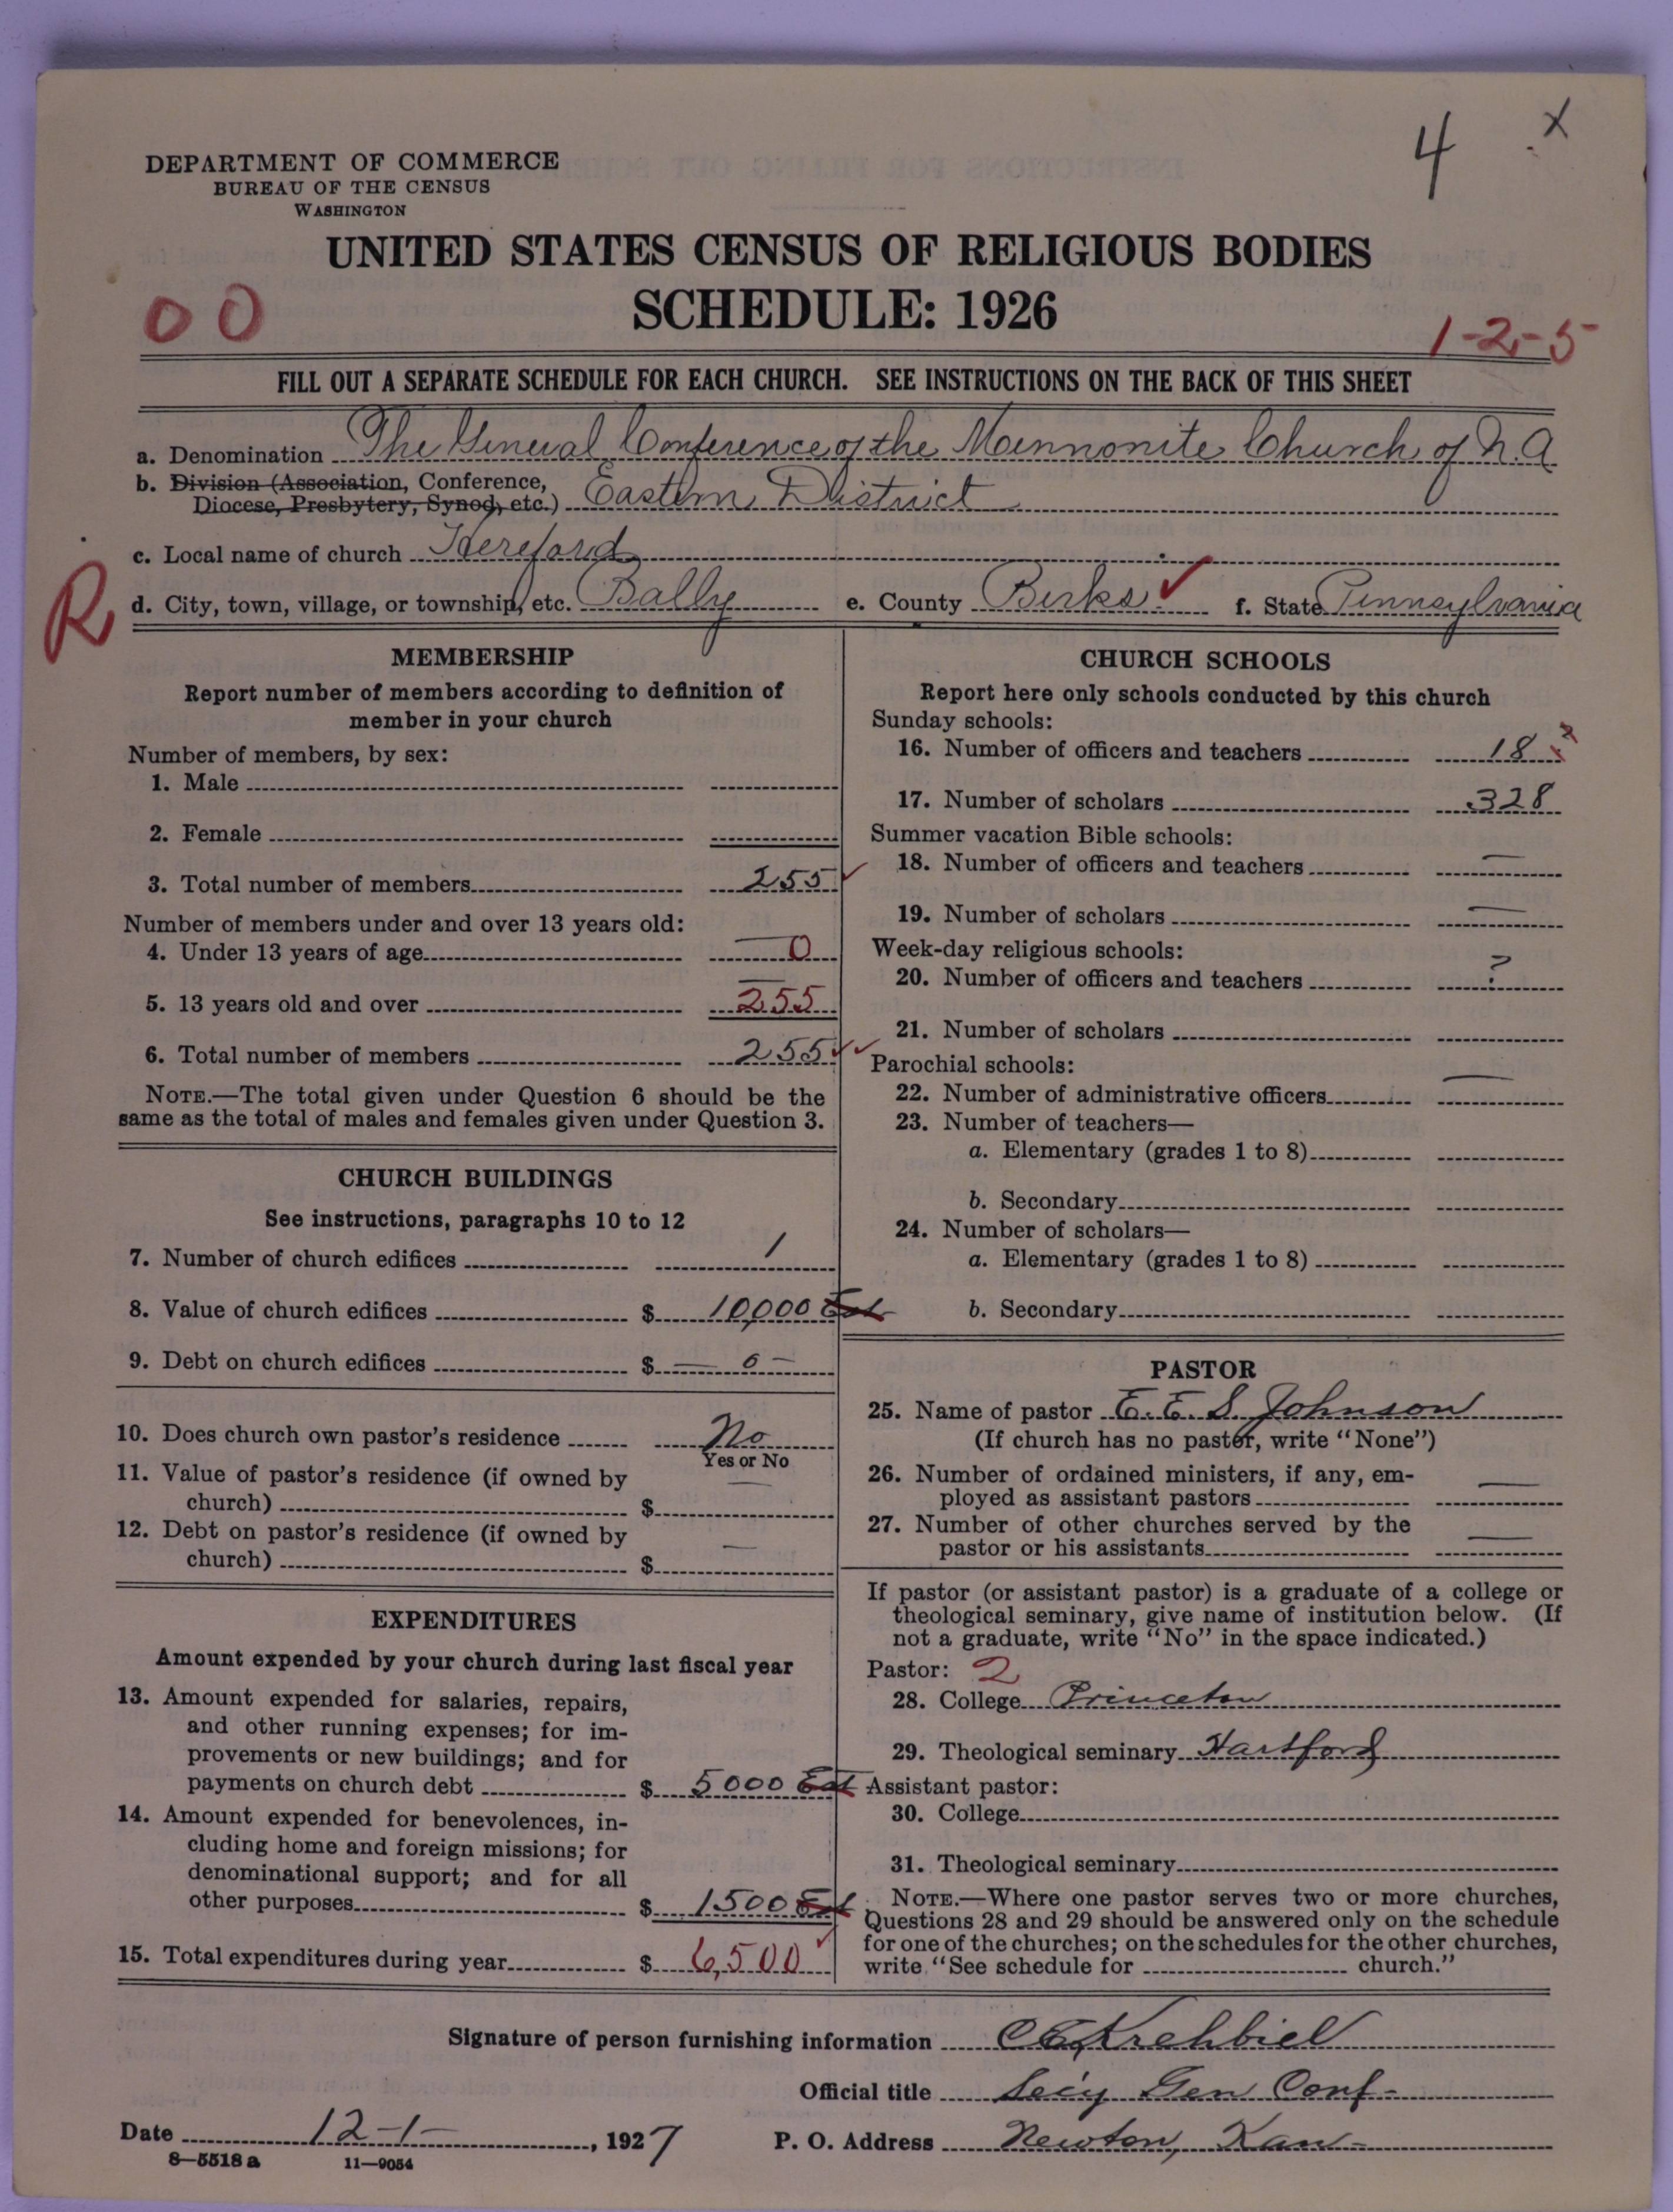 4 x
DEPARTMENT OF COMMERCE
BUREAU OF THE CENSUS
WASHINGTON
UNITED STATES CENSUS OF RELIGIOUS BODIES
SCHEDULE: 1926
00
1-2-5
FILL OUT A SEPARATE SCHEDULE FOR EACH CHURCH. SEE INSTRUCTIONS ON THE BACK OF THIS SHEET
a. Denomination The General Conference of the Mennonite Church of N.A.
b. Division (Association, Conference,
Diocese, Presbytery, Synod, etc.) Eastern District
c. Local name of church Hereford
R
d. City, town, village, or township, etc. Bally e. County Berks ✓ f. State Pennsylvania
MEMBERSHIP
Report number of members according to definition of
member in your church
Number of members, by sex:
1. Male
2. Female
3. Total number of members 255 ✓
Number of members under and over 13 years old:
4. Under 13 years of age 0
5. 13 years old and over 255
6. Total number of members 255 ✓✓
NOTE.—The total given under Question 6 should be the
same as the total of males and females given under Question 3.
CHURCH BUILDINGS
See instructions, paragraphs 10 to 12
7. Number of church edifices 1
8. Value of church edifices $ 10,000 Est
9. Debt on church edifices $ — 0 —
10. Does church own pastor's residence No
Yes or No
11. Value of pastor's residence (if owned by
church) $ —
12. Debt on pastor's residence (if owned by
church) $ —
EXPENDITURES
Amount expended by your church during last fiscal year
13. Amount expended for salaries, repairs,
and other running expenses; for im-
provements or new buildings; and for
payments on church debt $ 5000 Est
14. Amount expended for benevolences, in-
cluding home and foreign missions; for
denominational support; and for all
other purposes $ 1500 Est
15. Total expenditures during year $ 6,500 ✓
CHURCH SCHOOLS
Report here only schools conducted by this church
Sunday schools:
16. Number of officers and teachers 18
17. Number of scholars 328
Summer vacation Bible schools:
18. Number of officers and teachers —
19. Number of scholars —
Week-day religious schools:
20. Number of officers and teachers ?
21. Number of scholars
Parochial schools:
22. Number of administrative officers —
23. Number of teachers—
a. Elementary (grades 1 to 8)
b. Secondary
24. Number of scholars—
a. Elementary (grades 1 to 8)
b. Secondary
PASTOR
25. Name of pastor E. E. S. Johnson
(If church has no pastor, write "None")
26. Number of ordained ministers, if any, em-
ployed as assistant pastors —
27. Number of other churches served by the
pastor or his assistants —
If pastor (or assistant pastor) is a graduate of a college or
theological seminary, give name of institution below. (If
not a graduate, write "No" in the space indicated.)
Pastor: 2
28. College Princeton
29. Theological seminary Hartford
Assistant pastor:
30. College
31. Theological seminary
NOTE.—Where one pastor serves two or more churches,
Questions 28 and 29 should be answered only on the schedule
for one of the churches; on the schedules for the other churches,
write "See schedule for church."
Signature of person furnishing information C E Krehbiel
Official title Sec'y Gen Conf-
Date 12-1-, 1927 P. O. Address Newton, Kan-
8—5518 a 11—9054